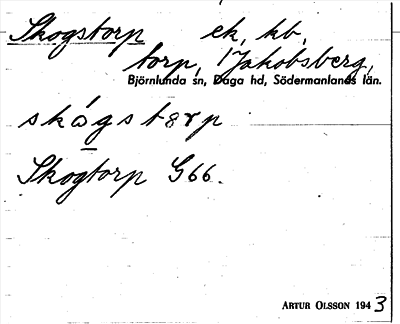 Skogstorp ek, kb,
torp, Jakobsberg,
Björnlunda sn, Daga hd, Södermanlands län.
skógstɵrp
Skogtorp G66.
ARTUR OLSSON 1943